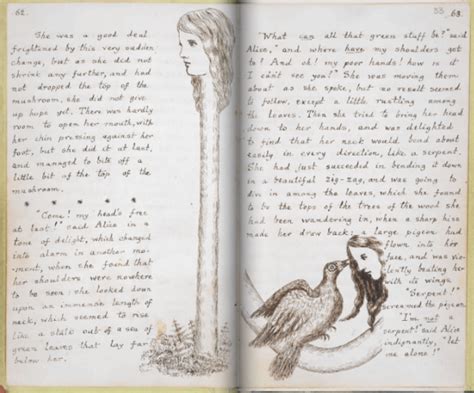 62.
She was a good deal
frightened by this very sudden
change, but as she did not
shrink any further, and had
not dropped the top of the
mushroom, she did not give
up hope yet. There was hardly
room to open her mouth, with
her chin pressing against her
foot, but she did it at last,
and managed to bite off a
little bit of the top of the
mushroom.
* * * * * *
"Come! my head's free
at last!" said Alice in a
tone of delight, which changed
into alarm in another mo-
ment, when she found that
her shoulders were nowhere
to be seen: she looked down
upon an immense length of
neck, which seemed to rise
like a stalk out of a sea of
green leaves that lay far
below her.
53 63.
"What can all that green stuff be?" said
Alice, "and where have my shoulders got
to? And oh! my poor hands! how is it
I can't see you?" She was moving them
about as she spoke, but no result seemed
to follow, except a little rustling among
the leaves. Then she tried to bring her head
down to her hands, and was delighted
to find that her neck would bend about
easily in every direction, like a serpent.
She had just succeeded in bending it down
in a beautiful zig-zag, and was going to
dive in among the leaves, which she found
to be the tops of the trees of the wood she
had been wandering in, when a sharp hiss
made her draw back: a large pigeon had
flown into her
face, and was vio-
lently beating her
with its wings.
"Serpent!"
screamed the pigeon.
"I'm not a
serpent!" said Alice
indignantly, "let
me alone!"